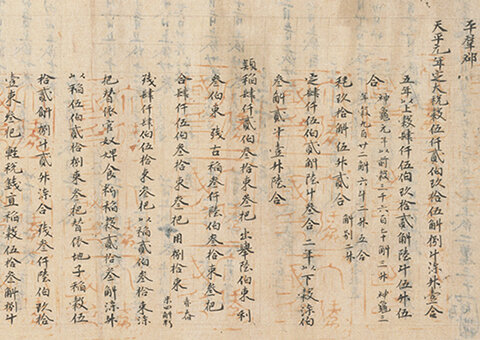 平群郡
天平元年定大税穀伍仟貳伯玖拾伍斛捌斗漆升壹合
五年以上穀肆仟伍伯玖拾貳斛陸斗伍升伍
合 神龜元年以前穀三千六百七十斛三升 神龜三
年穀九百廿二斛六斗二升五合
税玖拾斛伍升貳合 斛別二升
定肆仟伍伯貳斛陸斗叁合 二年以下穀漆伯
叁斛貳斗壹升陸合
頴稲肆仟貳伯叁拾捌束叁把 出擧陸伯束 利
叁伯束 残古稲叁仟陸伯叁拾捌束叁把
合肆仟伍伯叁拾捌束叁把 用捌拾束
残肆仟肆伯伍拾捌束叁把 以稲貳伯叁拾束漆
把替依官奴婢食料稲穀貳拾叁斛漆升
以稲伍伯貳拾捌束叁把替依地子稲穀伍
拾貳斛捌斗貳升漆合 残叁仟陸伯玖拾
壹束叁把 軽税錢直稲穀伍拾叁斛捌斗